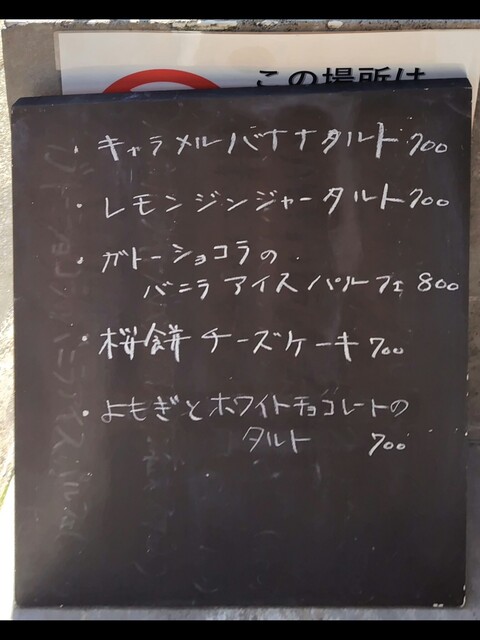 この場所は
・キャラメルバナナタルト 700
・レモンジンジャータルト 700
・ガトーショコラの
バニラアイスパルフェ 800
・桜餅チーズケーキ 700
・よもぎとホワイトチョコレートの
タルト 700